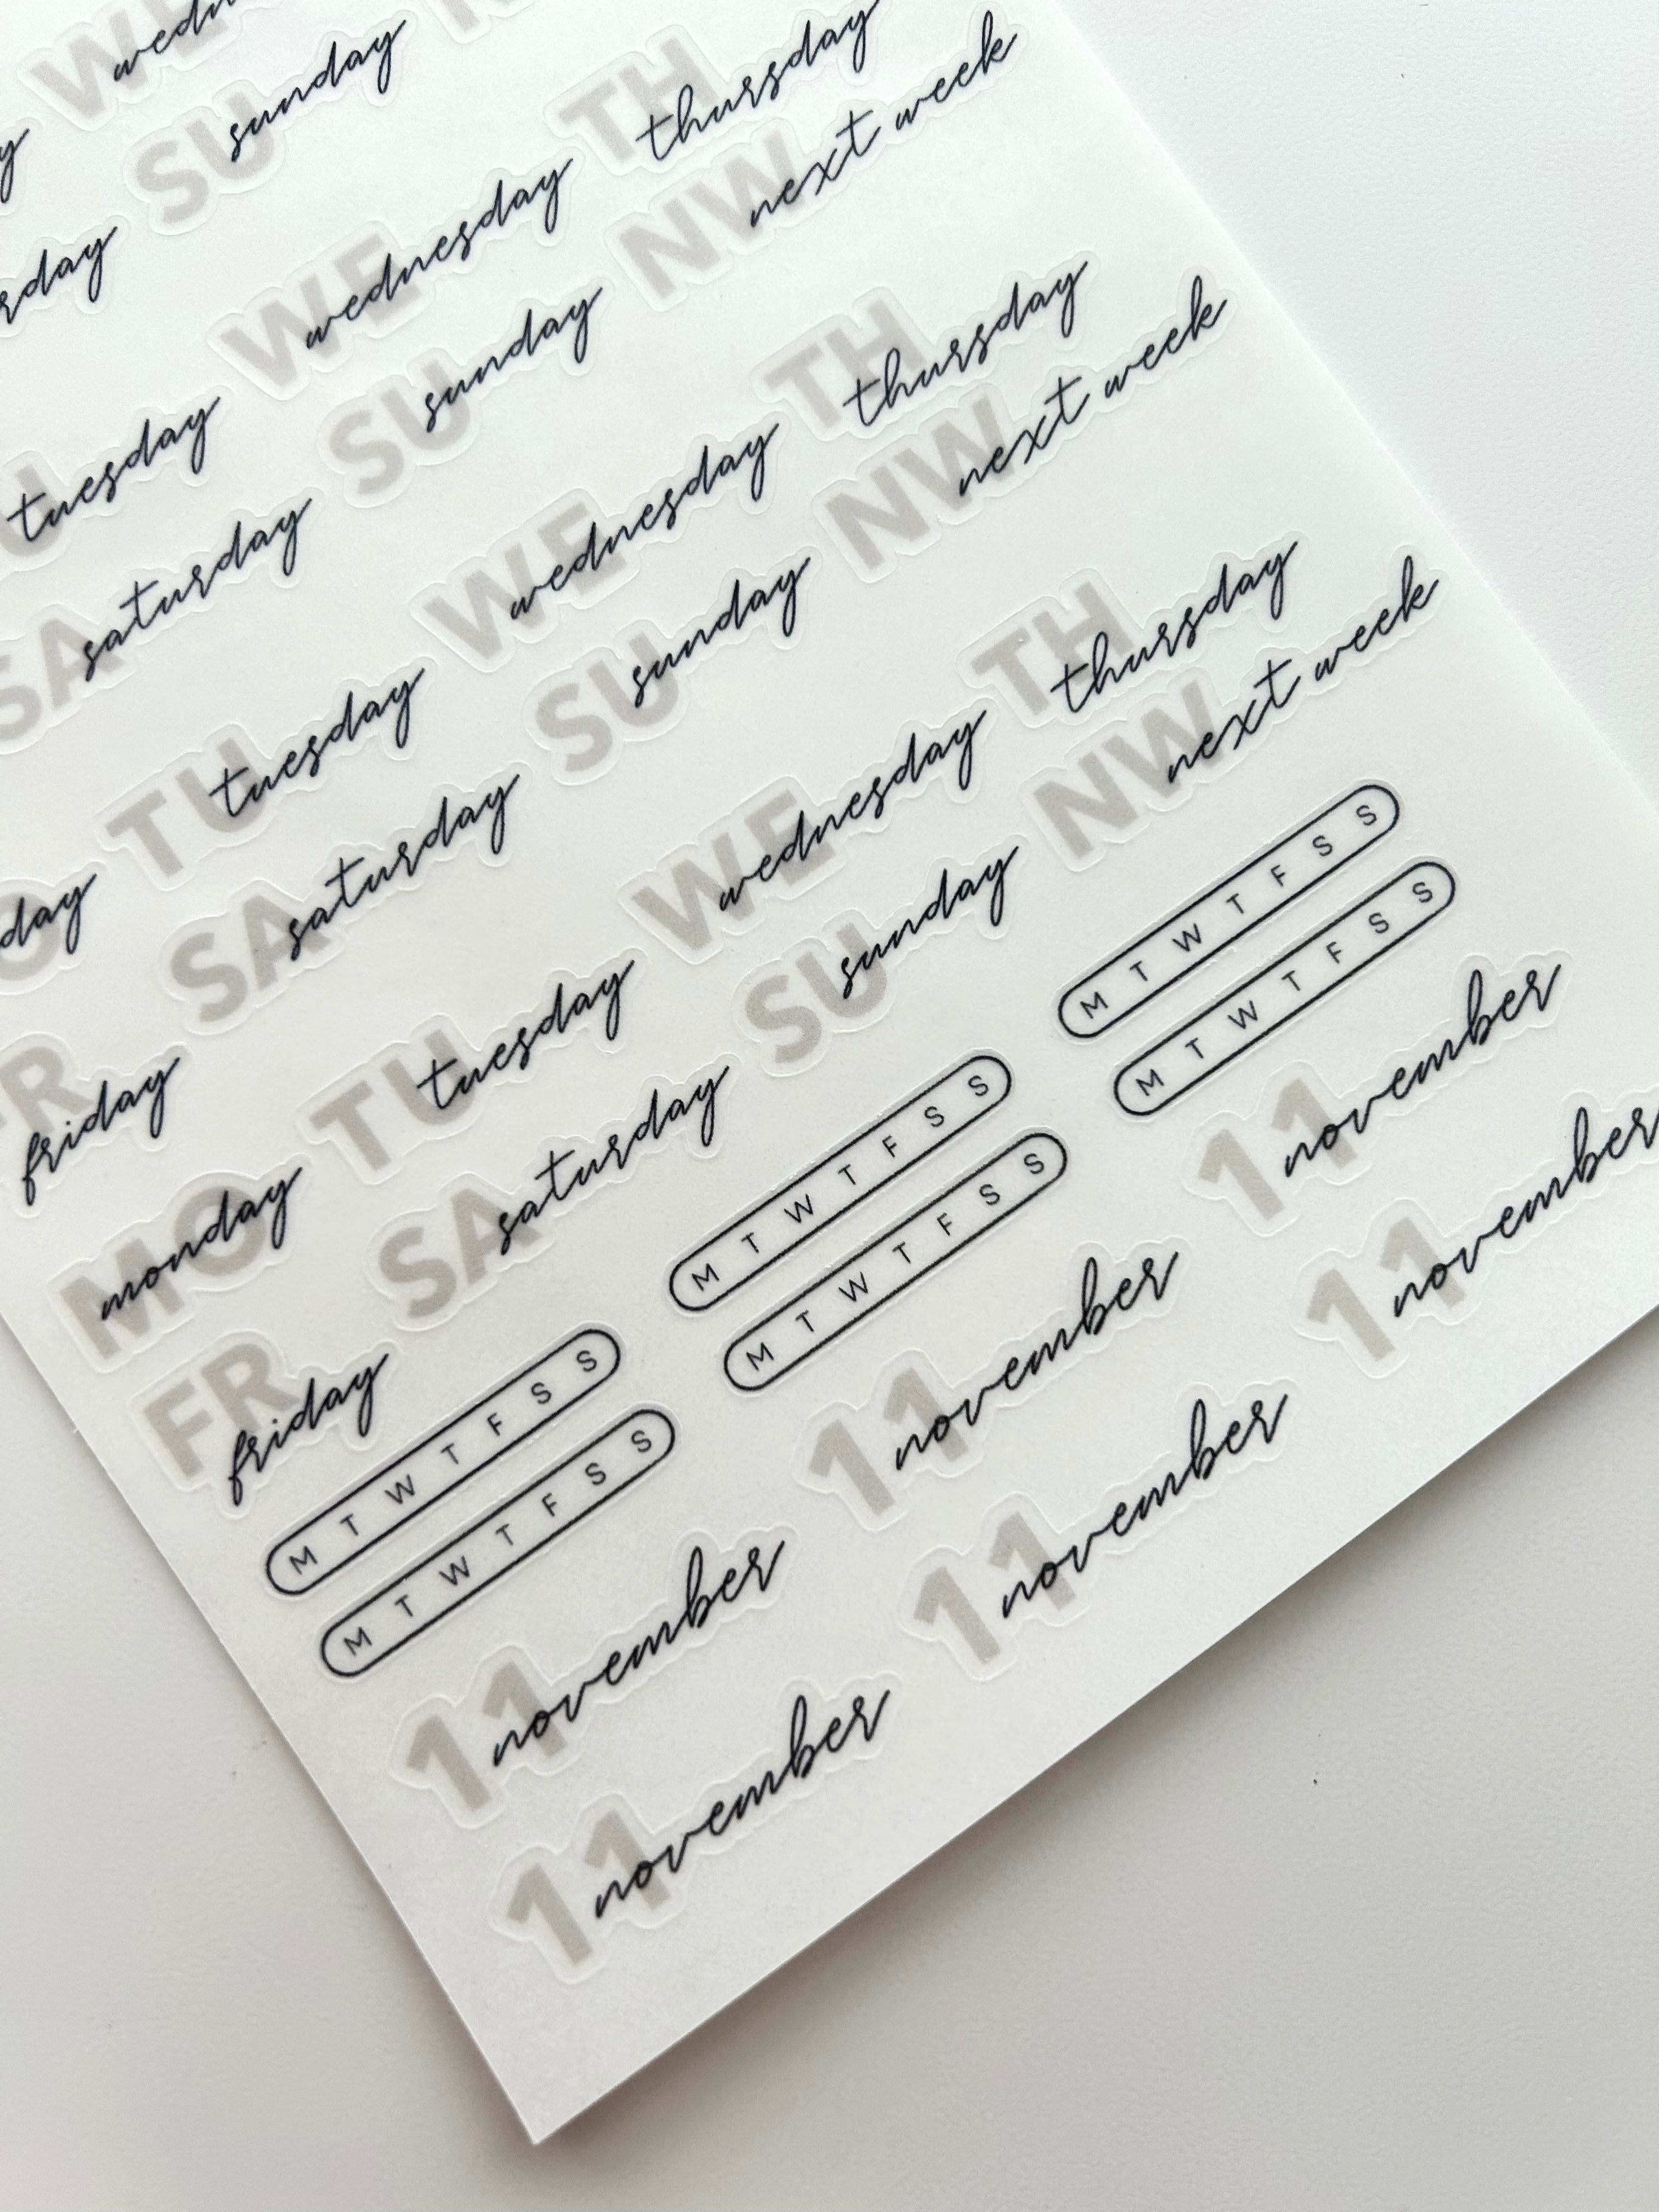 WE
SU sunday
tuesday WE wednesday TH thursday
SA saturday SU sunday NW next week
TU tuesday WE wednesday TH thursday
FR friday SA saturday SU sunday NW next week
MO monday TU tuesday WE wednesday TH thursday
FR friday SA saturday SU sunday NW next week
M T W T F S S M T W T F S S M T W T F S S
M T W T F S S M T W T F S S M T W T F S S
11 november 11 november 11 november
11 november 11 november 11 november